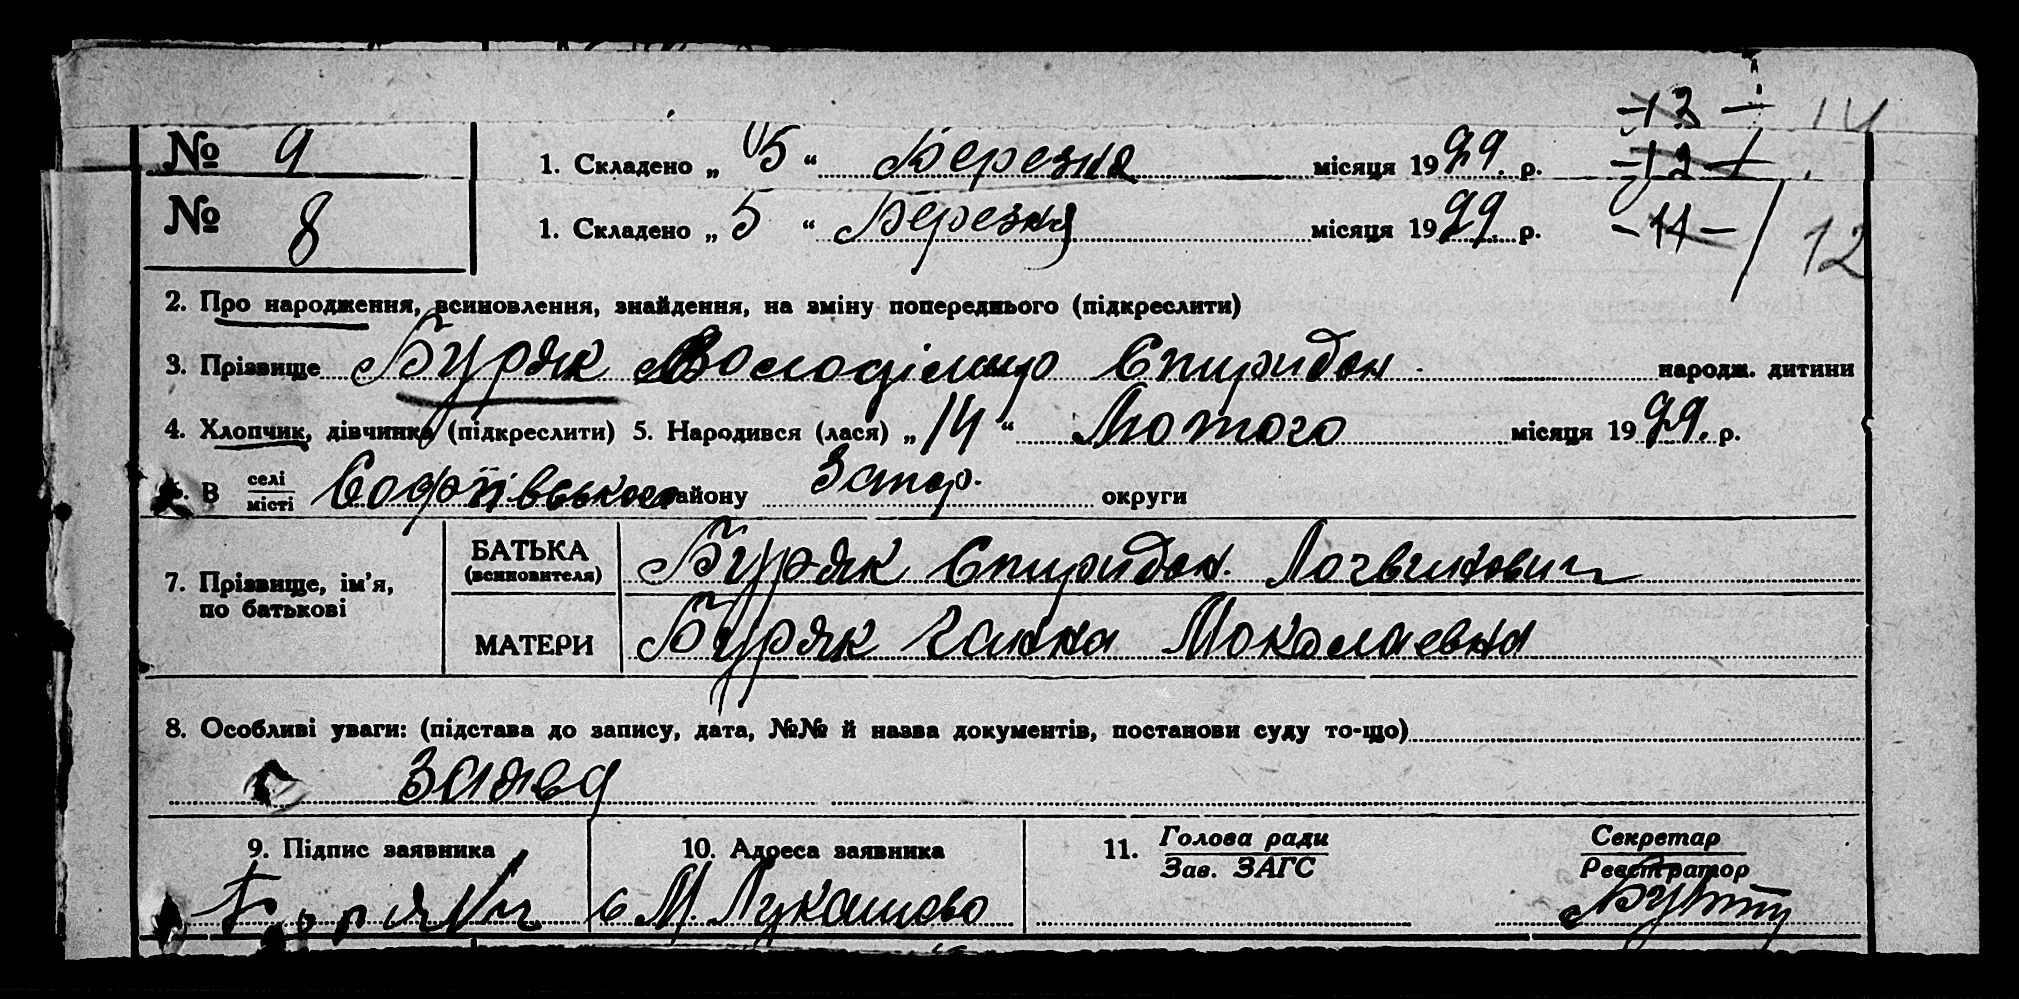 -13- 14
№ 9 1. Складено „ 5 “ Березня місяця 1929. р. -12-
№ 8 1. Складено „ 5 “ Березня місяця 1929. р. -11- 12
2. Про народження, всиновлення, знайдення, на зміну попереднього (підкреслити)
3. Прізвище Буряк Спиридон народж. дитини
4. Хлопчик, дівчинка (підкреслити) 5. Народився (лася) „ 14 “ Лютого місяця 1929. р.
В селі/місті Софіївського району Запор. округи
7. Прізвище, ім'я, по батькові
БАТЬКА (всиновителя) Буряк Спиридон Логвинович
МАТЕРИ Буряк Ганна Миколаевна
8. Особливі уваги: (підстава до запису, дата, №№ й назва документів, постанови суду то-що)
заява
9. Підпис заявника 10. Адреса заявника 11. Голова ради Секретар
Зав. ЗАГС Реєстратор
с М. Лукашово